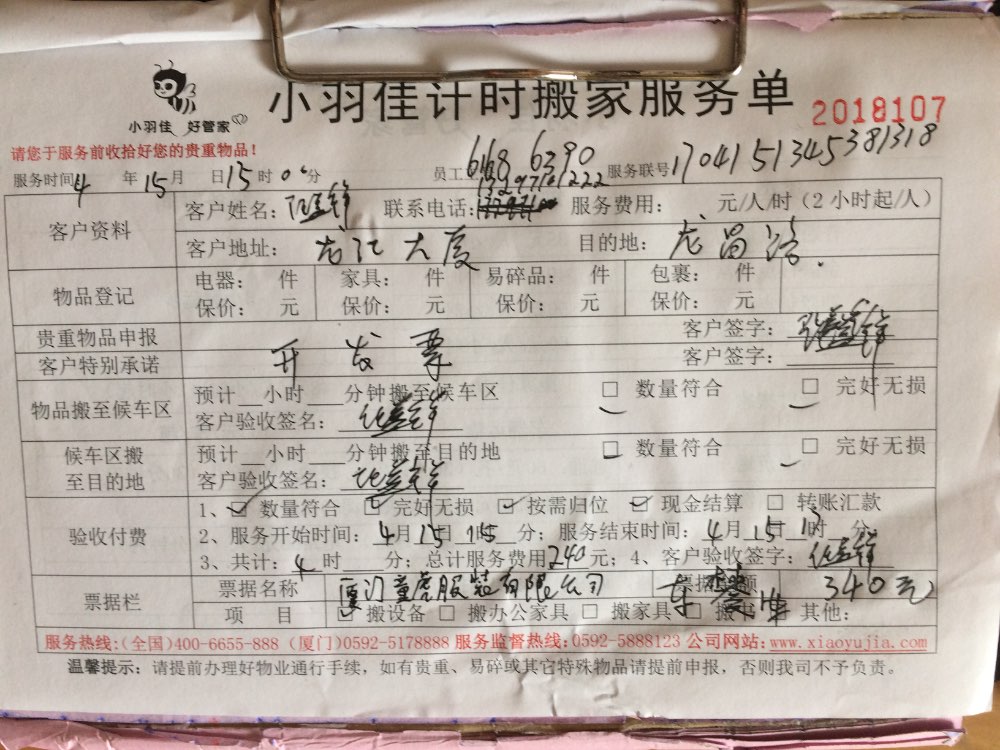 小羽佳 好管家
小羽佳计时搬家服务单 2018107
请您于服务前收拾好您的贵重物品！
服务时间 4 年 15 月 日 15 时 0 分 员工 6168 6390 服务联号 170415134538 1318
客户资料 客户姓名： 联系电话： 13297101222 服务费用： 元/人/时（2小时起/人）
客户地址： 龙江大厦 目的地： 龙昌
物品登记 电器： 件 家具： 件 易碎品： 件 包裹： 件
保价： 元 保价： 元 保价： 元 保价： 元
贵重物品申报 客户签字：
客户特别承诺 开发票 客户签字：
物品搬至候车区 预计__小时___分钟搬至候车区 □ 数量符合 □ 完好无损
客户验收签名：
候车区搬至目的地 预计__小时___分钟搬至目的地 □ 数量符合 □ 完好无损
客户验收签名：
验收付费 1、☑ 数量符合 ☑ 完好无损 ☑ 按需归位 ☑ 现金结算 □ 转账汇款
2、服务开始时间： 4月15日 时 分；服务结束时间： 4月15日 时 分；
3、共计： 4 时 分；总计服务费用240元；4、客户验收签字：
票据栏 票据名称 厦门童虎服装有限公司 票据金额 340元
项 目 ☑ 搬设备 □ 搬办公家具 □ 搬家具 □ 搬书 □ 其他：
服务热线：（全国）400-6655-888 （厦门）0592-5178888 服务监督热线：0592-5888123 公司网站：www.xiaoyujia.com
温馨提示：请提前办理好物业通行手续，如有贵重、易碎或其它特殊物品请提前申报，否则我司不予负责。